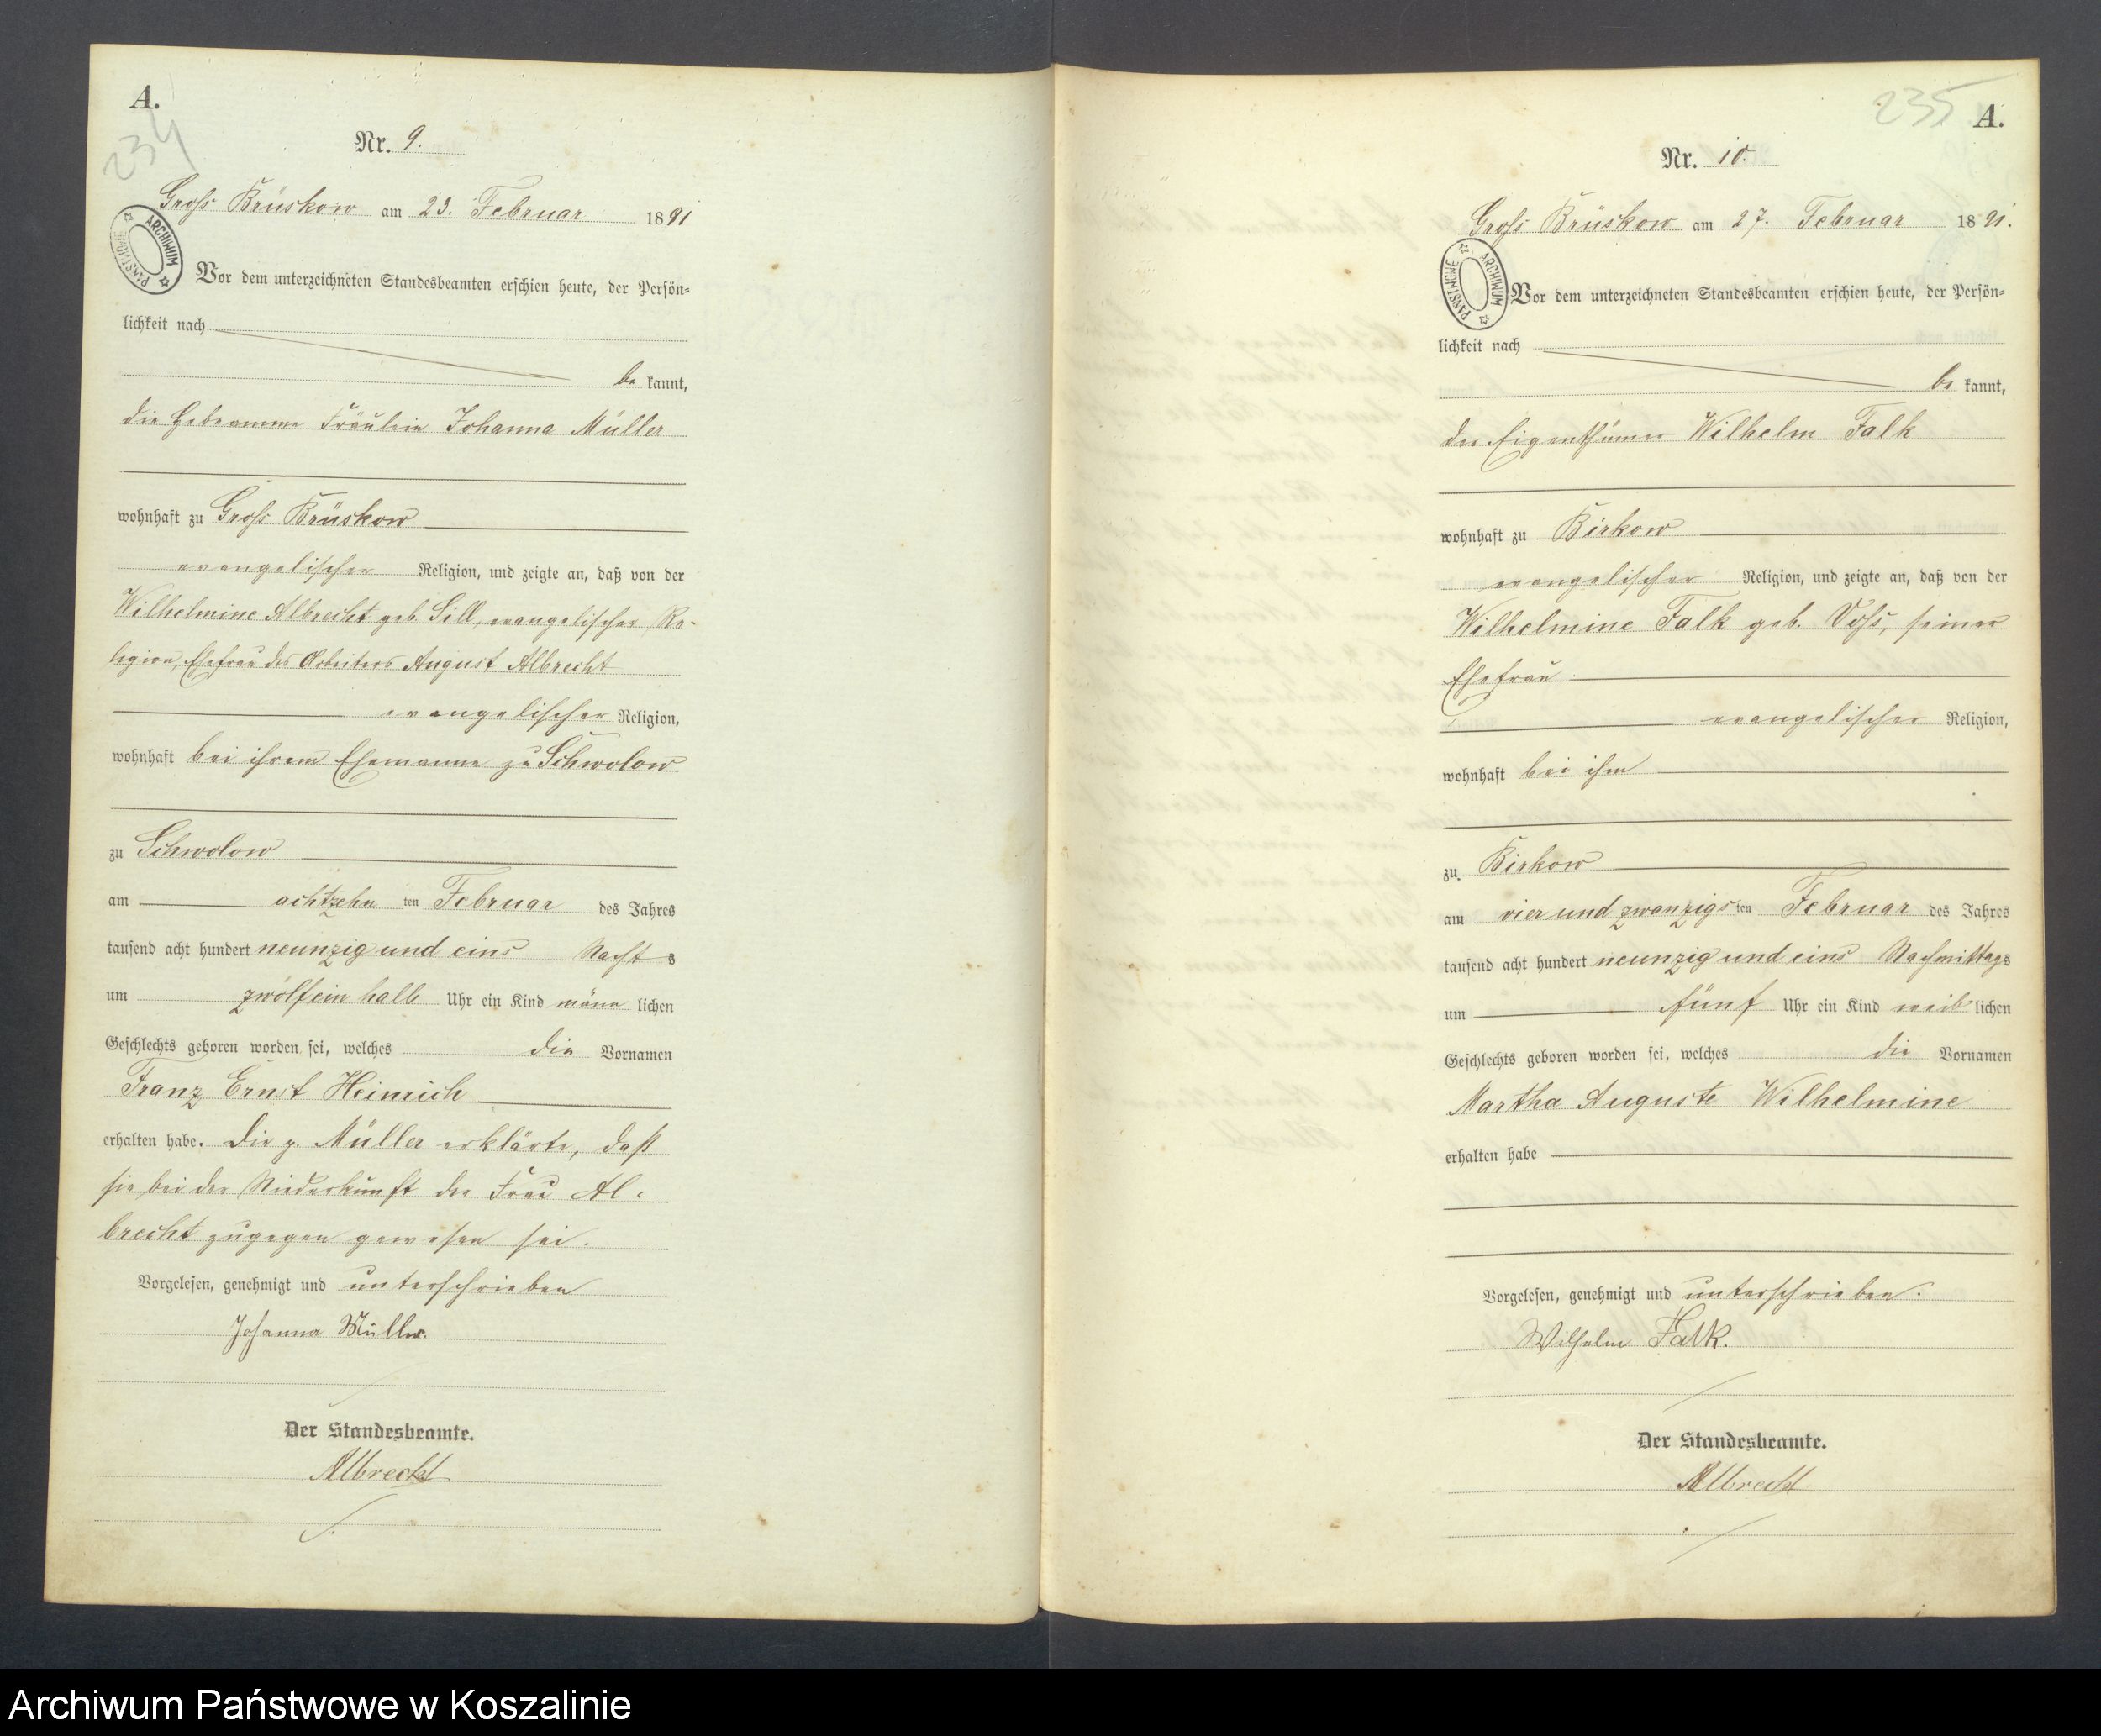 A.
234
Nr. 9.
Groß Brüskow am 23. Februar 1891
ARCHIWUM PAŃSTWOWE
Vor dem unterzeichneten Standesbeamten erschien heute, der Persön=
lichkeit nach
be kannt,
die Hebeamme Fräulein Johanna Müller
wohnhaft zu Groß Brüskow
evangelischer Religion, und zeigte an, daß von der
Wilhelmine Albrecht geb. Sill, evangelischer Re-
ligion, Ehefrau des Arbeiters August Albrecht
evangelischer Religion,
wohnhaft bei ihrem Ehemanne zu Schwolow
zu Schwolow
am achtzehn ten Februar des Jahres
tausend acht hundert neunzig und eins Nacht s
um zwölfein halb Uhr ein Kind männ lichen
Geschlechts geboren worden sei, welches die Vornamen
Franz Ernst Heinrich
erhalten habe. Die p. Müller erklärte, daß
sie bei der Niederkunft der Frau Al-
brecht zugegen gewesen sei.
Vorgelesen, genehmigt und unterschrieben
Johanna Müller.
Der Standesbeamte.
Albrecht
235
A.
Nr. 10.
Groß Brüskow am 27. Februar 1891.
ARCHIWUM PAŃSTWOWE
Vor dem unterzeichneten Standesbeamten erschien heute, der Persön=
lichkeit nach
be kannt,
der Eigenthümer Wilhelm Falk
wohnhaft zu Birkow
evangelischer Religion, und zeigte an, daß von der
Wilhelmine Falk geb. Voß, seiner
Ehefrau
evangelischer Religion,
wohnhaft bei ihm
zu Birkow
am vier und zwanzigs ten Februar des Jahres
tausend acht hundert neunzig und eins Nachmittags
um fünf Uhr ein Kind weib lichen
Geschlechts geboren worden sei, welches die Vornamen
Martha Auguste Wilhelmine
erhalten habe
Vorgelesen, genehmigt und unterschrieben.
Wilhelm Falk.
Der Standesbeamte.
Albrecht
Archiwum Państwowe w Koszalinie